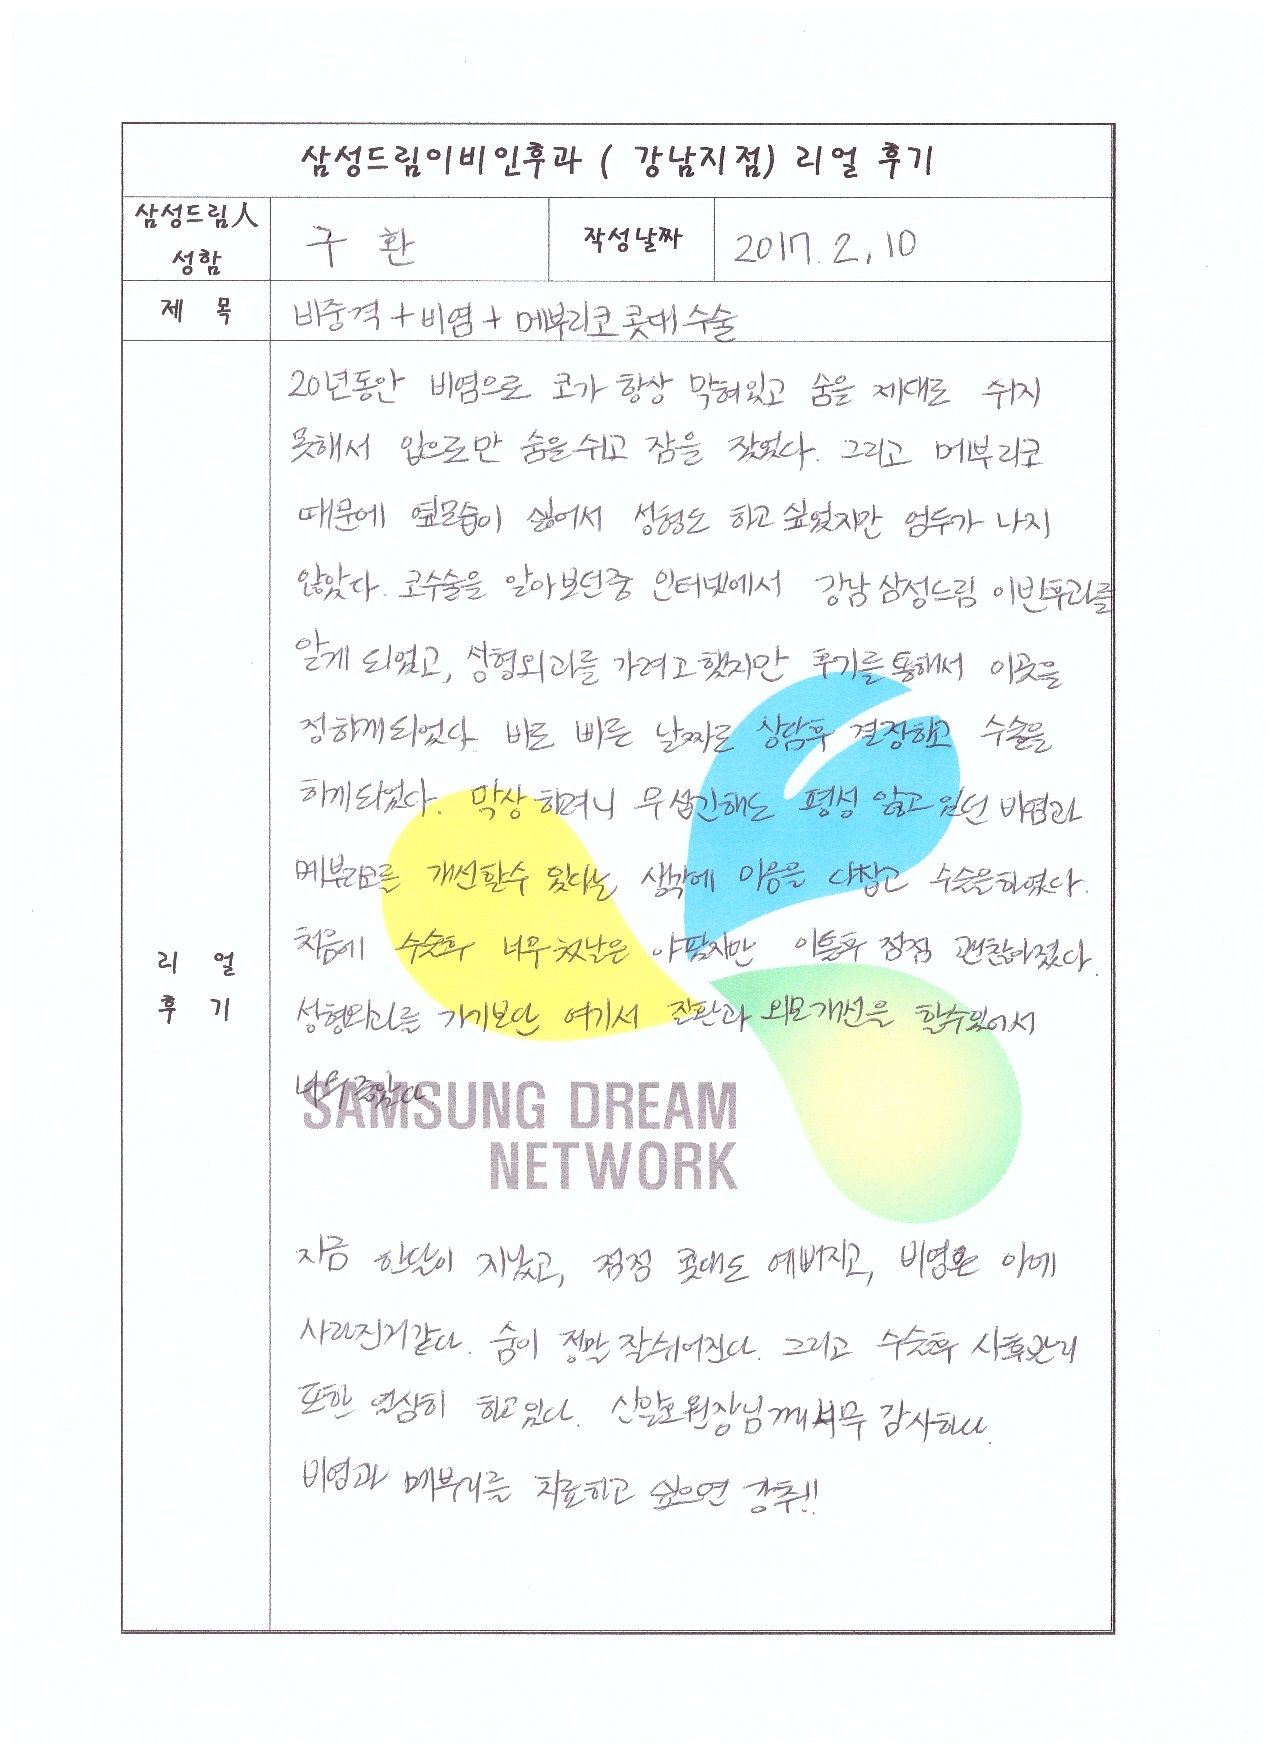 삼성드림이비인후과 ( 강남지점) 리얼 후기
삼성드림人 성함
구 환
작성날짜
2017. 2. 10
제 목
비중격 + 비염 + 메부리코 콧대 수술
리 얼 후 기
20년동안 비염으로 코가 항상 막혀있고 숨을 제대로 쉬지
못해서 입으로만 숨을쉬고 잠을 잤었다. 그리고 메부리코
때문에 옆모습이 싫어서 성형도 하고 싶었지만 엄두가 나지
않았다. 코수술을 알아보던중 인터넷에서 강남 삼성드림 이빈후과를
알게 되었고, 성형외과를 가려고 했지만 후기를 통해서 이곳을
정하게되었다. 바로 빠른 날짜로 상담후 결정하고 수술을
하게되었다. 막상 하려니 무섭긴해도 평생 앓고 있던 비염과
메부리코를 개선할수 있다는 생각에 마음을 다잡고 수술을하였다.
처음에 수술후 너무 첫날은 아팠지만 이틀후 점점 괜찮아졌다.
성형외과를 가기보단 여기서 질환과 외모개선을 할수있어서
너무 좋았다.
SAMSUNG DREAM
NETWORK
지금 한달이 지났고, 점점 콧대도 예뻐지고, 비염은 아예
사라진거같다. 숨이 정말 잘쉬어진다. 그리고 수술후 사후관리
또한 열심히 하고있다. 원장님께 너무 감사하다.
비염과 메부리를 치료하고 싶으면 강추!!